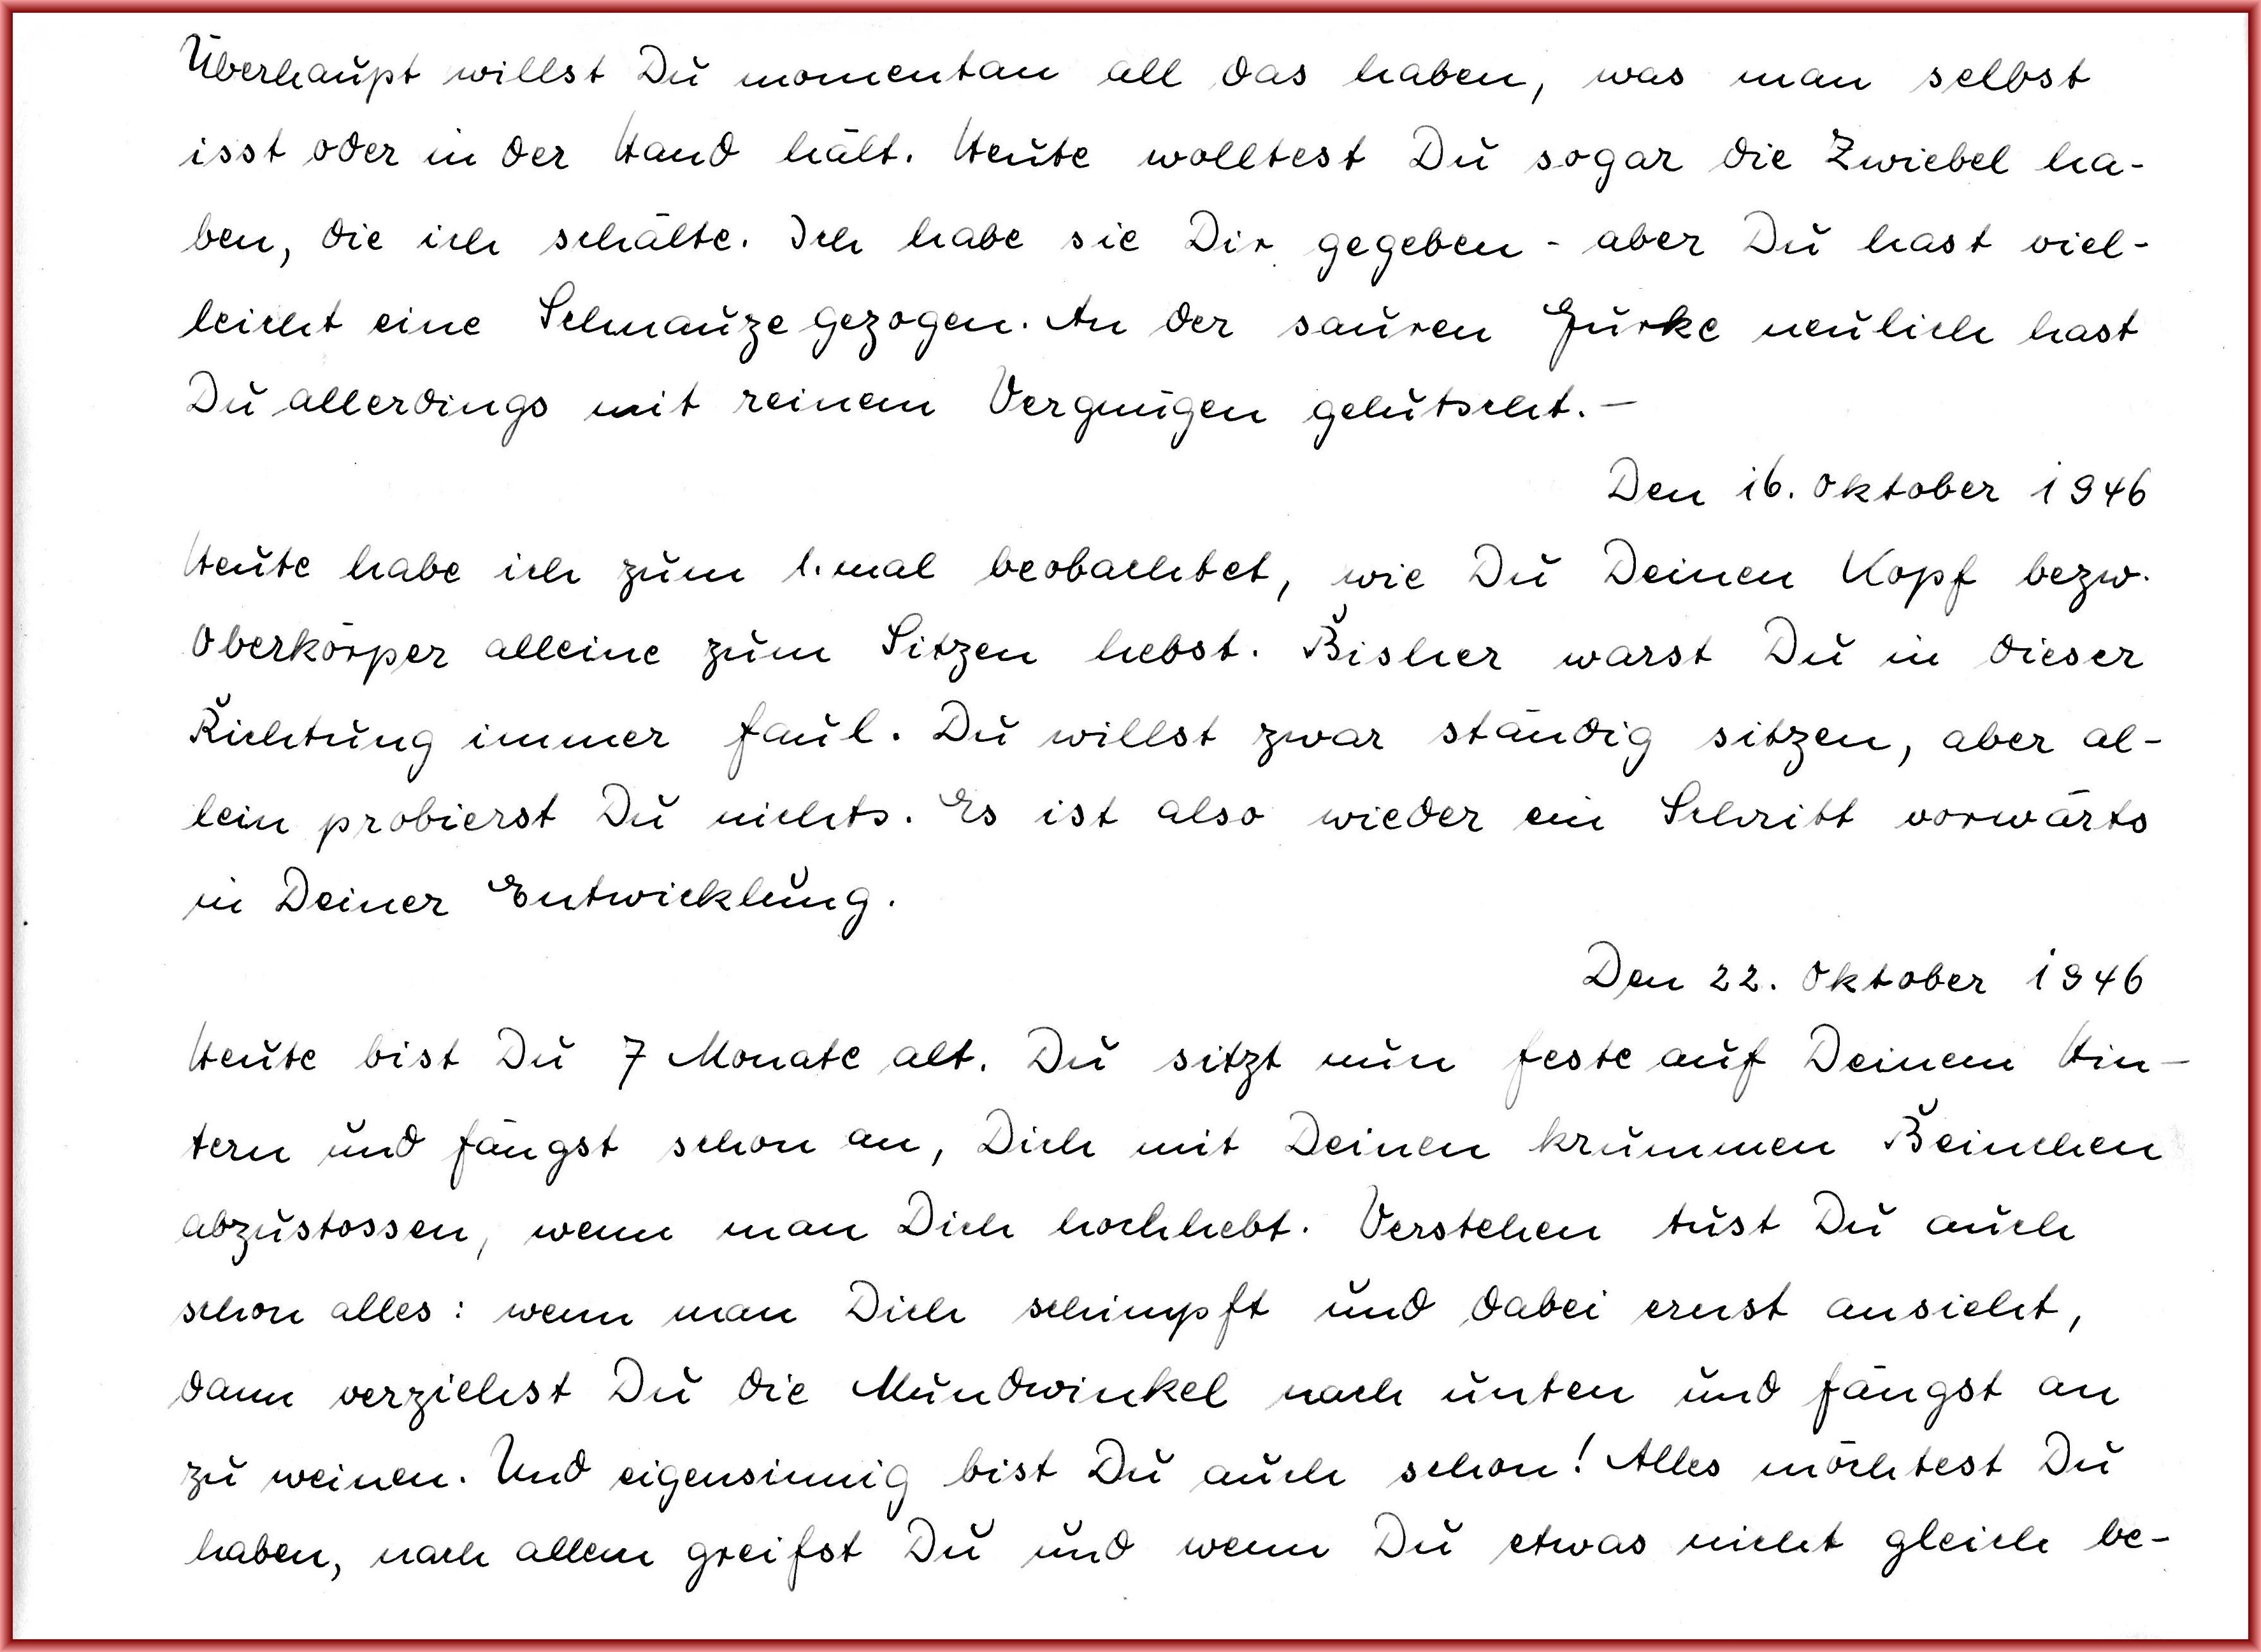 Überhaupt willst Du momentan all das haben, was man selbst
isst oder in der Hand hält. Heute wolltest Du sogar die Zwiebel ha-
ben, die ich schälte. Ich habe sie Dir gegeben - aber Du hast viel-
leicht eine Schnauze gezogen. An der sauren Gurke neulich hast
Du allerdings mit reinem Vergnügen gelutscht. –
Den 16. Oktober 1946
Heute habe ich zum 1. mal beobachtet, wie Du Deinen Kopf bezw.
Oberkörper alleine zum Sitzen hebst. Bisher warst Du in dieser
Richtung immer faul. Du willst zwar ständig sitzen, aber al-
lein probierst Du nichts. Es ist also wieder ein Schritt vorwärts
in Deiner Entwicklung.
Den 22. Oktober 1946
Heute bist Du 7 Monate alt. Du sitzt nun feste auf Deinem Hin-
tern und fängst schon an, Dich mit Deinen krummen Beinchen
abzustossen, wenn man Dich hochhebt. Verstehen tust Du auch
schon alles: wenn man Dich schimpft und dabei ernst ansieht,
dann verziehst Du die Mundwinkel nach unten und fängst an
zu weinen. Und eigensinnig bist Du auch schon! Alles möchtest Du
haben, nach allem greifst Du und wenn Du etwas nicht gleich be-